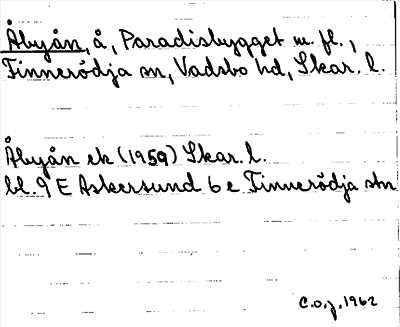 Åbyån, å, Paradisbygget m. fl.,
Finnerödja sn, Vadsbo hd, Skar. l.
Åbyån ek (1959) Skar. l.
bl. 9 E Askersund 6 e Finnerödja stn
C.O.J. 1962